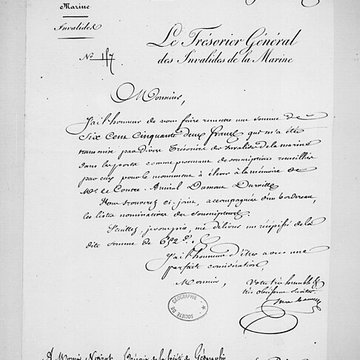 Marine
Invalides
N° 157
Le Trésorier Général
des Invalides de la Marine
Monsieur,
J'ai l'honneur de vous faire remettre une somme de
Six Cent Cinquante deux francs qui m'a été
transmise par divers Trésoriers des Invalides de la marine
dans les ports comme provenant de souscriptions recueillies
par eux pour le monument à élever à la mémoire de
Mr le Contre Amiral Dumont Durville
Vous trouverez ci-joint, accompagnées d'un bordereau,
les listes nominatives des Souscripteurs.
Veuillez, je vous prie, me délivrer un récépissé de la
dite somme de 652 f.
J'ai l'honneur d'être avec une
parfaite considération,
Monsieur,
Votre très humble &
très obéissant Serviteur
A Monsieur Noirot, de la Société de Géographie